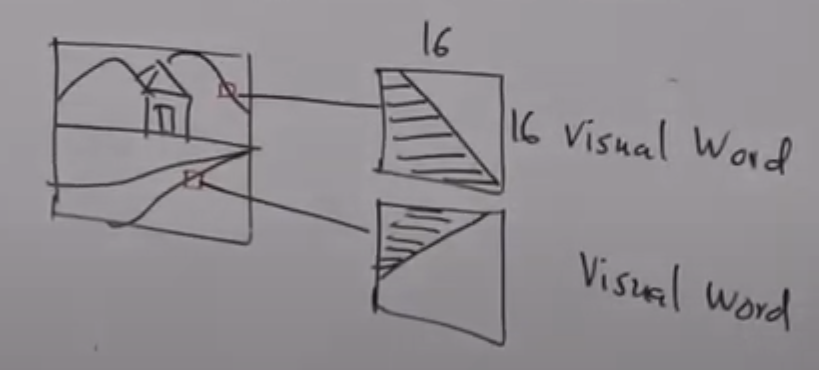 16
16 Visual Word
Visual Word